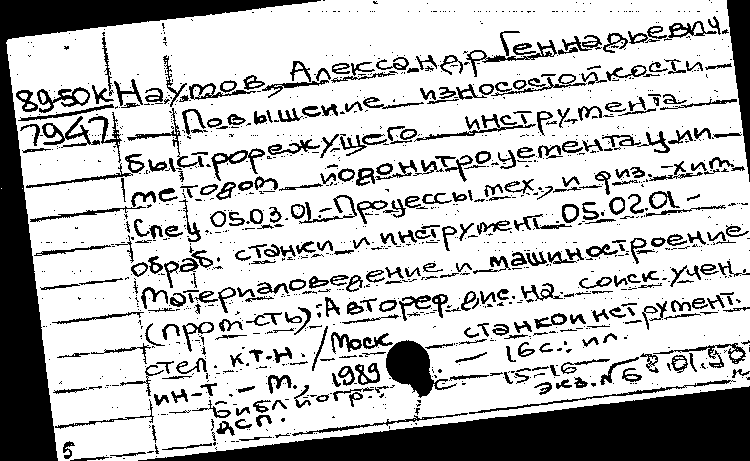 89-50К Наумов, Александр Геннадьевич
7947 Повышение износостойкости
быстрорежущего инструмента
методом иодонитроцементации
Спец. 05.03.01 - Процессы мех. и физ.-хим.
обраб. станки и инструмент 05.02.01 -
Материаловедение и машиностроение
(пром-сть): Автореф дис. на соиск. учен.
степ. к.т.н. / Моск. станкоинструмент.
ин-т. - М., 1989. - 16 с.: ил.
Библиогр.: с. 15-16
ДСП. экз. № 6 8.01.90
5